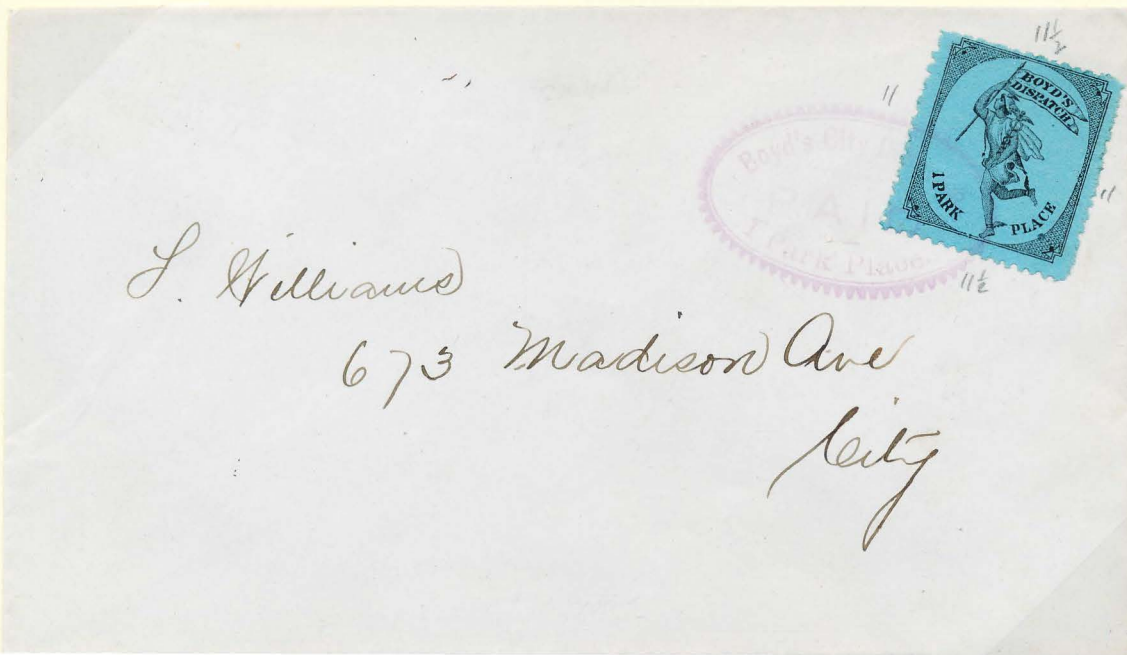 11½
11
BOYD'S
DISPATCH
1 PARK PLACE
11
11½
Boyd's City
PAI
1 Park Place
L. Williams
673 Madison Ave
City